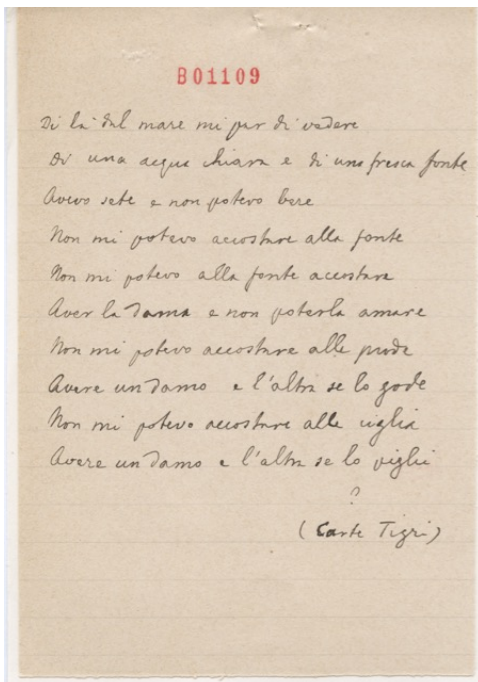 B01109
Di là dal mare mi par di vedere
Di una acqua chiara e di una fresca fonte
Avevo sete e non potevo bere
Non mi potevo accostare alla fonte
Non mi potevo alla fonte accostare
Aver la dama e non poterla amare
Non mi potevo accostare alle prode
Avere un damo e l'altra se lo gode
Non mi potevo accostare alle ciglia
Avere un damo e l'altra se lo piglia
?
(Carte Tigri)